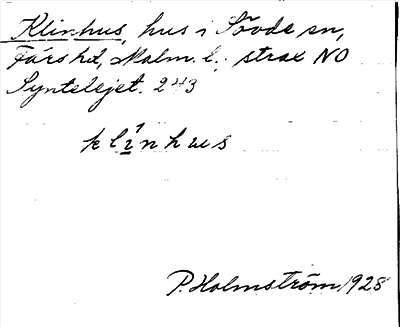 Klinhus, hus i Sövde sn,
Färs hd, Malm. l., strax NO
Syntelejet. 243
klinhus
P. Holmström 1928